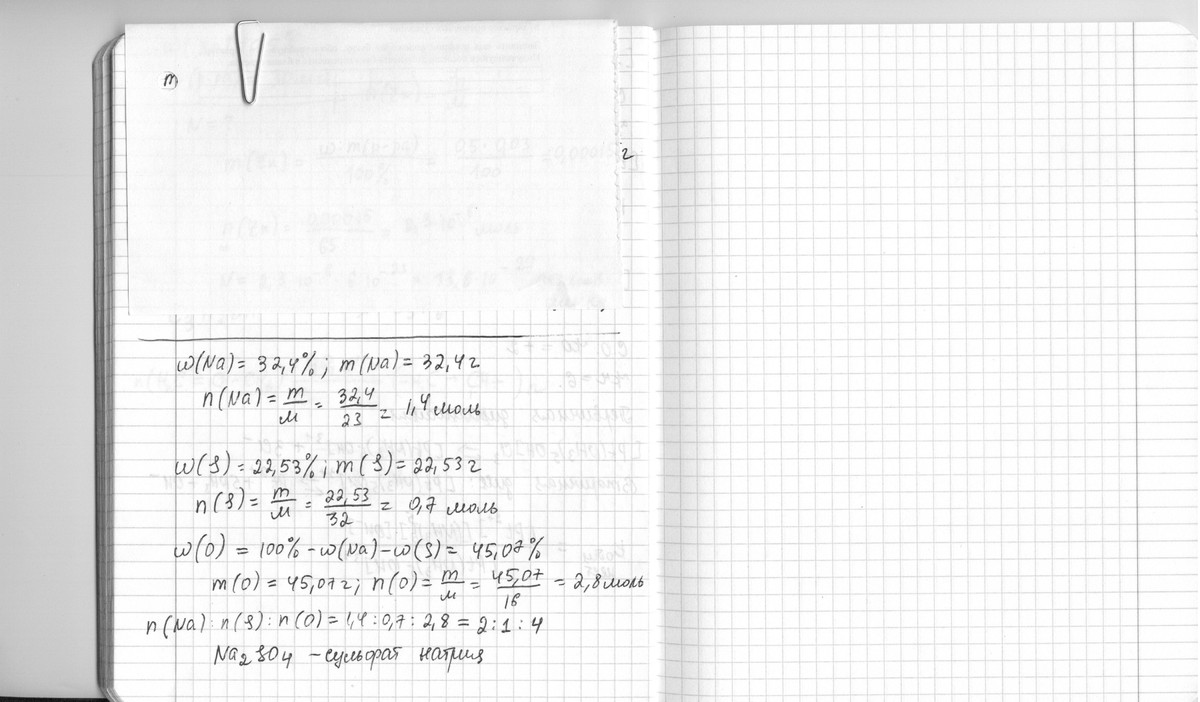 m
г
w(Na) = 32,4%; m(Na) = 32,4г
n(Na) = m/м = 32,4/23 = 1,4 моль
w(S) = 22,53%; m(S) = 22,53г
n(S) = m/м = 22,53/32 = 0,7 моль
w(O) = 100% - w(Na) - w(S) = 45,07%
m(O) = 45,07г; n(O) = m/м = 45,07/16 = 2,8 моль
n(Na) : n(S) : n(O) = 1,4 : 0,7 : 2,8 = 2 : 1 : 4
Na2SO4 - сульфат натрия